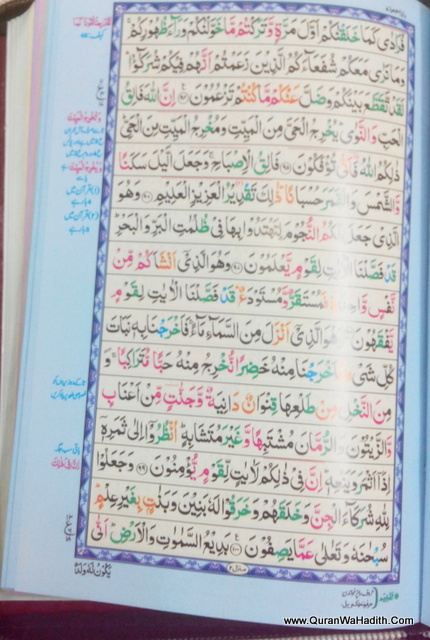 فُرَادٰى كَمَا خَلَقْنٰكُمْ اَوَّلَ مَرَّةٍ وَّتَرَكْتُمْ مَّا خَوَّلْنٰكُمْ وَرَآءَ ظُهُوْرِكُمْ ۚ
وَمَا نَرٰى مَعَكُمْ شُفَعَآءَكُمُ الَّذِيْنَ زَعَمْتُمْ اَنَّهُمْ فِيْكُمْ شُرَكٰٓؤُا ؕ
لَقَدْ تَّقَطَّعَ بَيْنَكُمْ وَضَلَّ عَنْكُمْ مَّا كُنْتُمْ تَزْعُمُوْنَ ۞ اِنَّ اللّٰهَ فَالِقُ
الْحَبِّ وَالنَّوٰى ؕ يُخْرِجُ الْحَىَّ مِنَ الْمَيِّتِ وَمُخْرِجُ الْمَيِّتِ مِنَ الْحَىِّ ؕ
ذٰلِكُمُ اللّٰهُ فَاَنّٰى تُؤْفَكُوْنَ ۞ فَالِقُ الْاِصْبَاحِ ۚ وَجَعَلَ الَّيْلَ سَكَنًا
وَّالشَّمْسَ وَالْقَمَرَ حُسْبَانًا ؕ ذٰلِكَ تَقْدِيْرُ الْعَزِيْزِ الْعَلِيْمِ ۞ وَهُوَ
الَّذِىْ جَعَلَ لَكُمُ النُّجُوْمَ لِتَهْتَدُوْا بِهَا فِىْ ظُلُمٰتِ الْبَرِّ وَالْبَحْرِ ؕ
قَدْ فَصَّلْنَا الْاٰيٰتِ لِقَوْمٍ يَّعْلَمُوْنَ ۞ وَهُوَ الَّذِىْٓ اَنْشَاَكُمْ مِّنْ
نَّفْسٍ وَّاحِدَةٍ فَمُسْتَقَرٌّ وَّمُسْتَوْدَعٌ ؕ قَدْ فَصَّلْنَا الْاٰيٰتِ لِقَوْمٍ
يَّفْقَهُوْنَ ۞ وَهُوَ الَّذِىْٓ اَنْزَلَ مِنَ السَّمَآءِ مَآءً ۚ فَاَخْرَجْنَا بِهٖ نَبَاتَ
كُلِّ شَىْءٍ فَاَخْرَجْنَا مِنْهُ خَضِرًا نُّخْرِجُ مِنْهُ حَبًّا مُّتَرَاكِبًا ۚ وَ
مِنَ النَّخْلِ مِنْ طَلْعِهَا قِنْوَانٌ دَانِيَةٌ وَّجَنّٰتٍ مِّنْ اَعْنَابٍ
وَّالزَّيْتُوْنَ وَالرُّمَّانَ مُشْتَبِهًا وَّغَيْرَ مُتَشَابِهٍ ؕ اُنْظُرُوْٓا اِلٰى ثَمَرِهٖٓ
اِذَآ اَثْمَرَ وَيَنْعِهٖ ؕ اِنَّ فِىْ ذٰلِكُمْ لَاٰيٰتٍ لِّقَوْمٍ يُّؤْمِنُوْنَ ۞ وَجَعَلُوْا
لِلّٰهِ شُرَكَآءَ الْجِنَّ وَخَلَقَهُمْ وَخَرَقُوْا لَهٗ بَنِيْنَ وَبَنٰتٍۭ بِغَيْرِ عِلْمٍ ؕ
سُبْحٰنَهٗ وَتَعٰلٰى عَمَّا يَصِفُوْنَ ۞ بَدِيْعُ السَّمٰوٰتِ وَالْاَرْضِ ؕ اَنّٰى
يَكُوْنُ لَهٗ وَلَدٌ
www.QuranWaHadith.Com